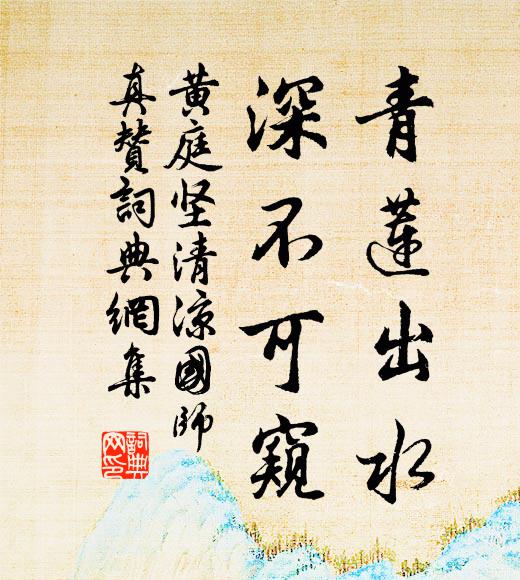 青蓮出水
深不可窺
黄庭坚清涼國師
真赞詞典網集
詞典网印